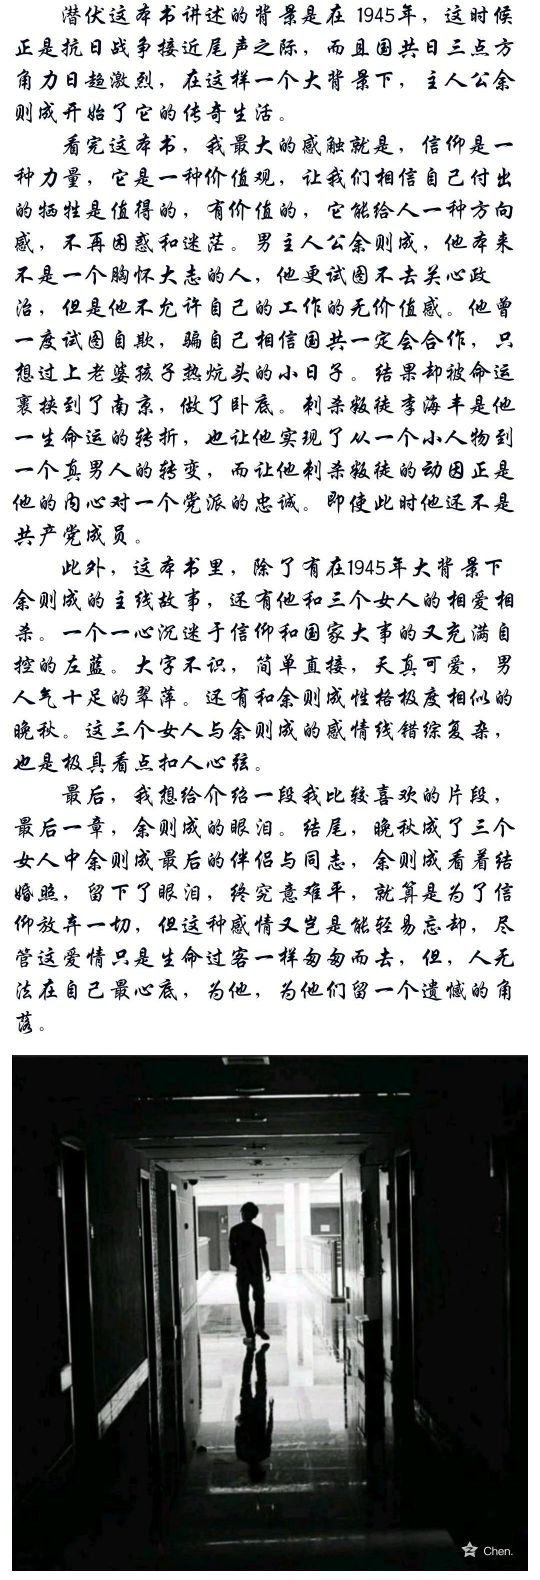 潜伏这本书讲述的背景是在 1945年，这时候
正是抗日战争接近尾声之际，而且国共日三点方
角力日趋激烈，在这样一个大背景下，主人公余
则成开始了它的传奇生活。
看完这本书，我最大的感触就是，信仰是一
种力量，它是一种价值观，让我们相信自己付出
的牺牲是值得的，有价值的，它能给人一种方向
感，不再困惑和迷茫。男主人公余则成，他本来
不是一个胸怀大志的人，他更试图不去关心政
治，但是他不允许自己的工作的无价值感。他曾
一度试图自欺，骗自己相信国共一定会合作，只
想过上老婆孩子热炕头的小日子。结果却被命运
裹挟到了南京，做了卧底。刺杀叛徒李海丰是他
一生命运的转折，也让他实现了从一个小人物到
一个真男人的转变，而让他刺杀叛徒的动因正是
他的内心对一个党派的忠诚。即使此时他还不是
共产党成员。
此外，这本书里，除了有在1945年大背景下
余则成的主线故事，还有他和三个女人的相爱相
杀。一个一心沉迷于信仰和国家大事的又充满自
控的左蓝。大字不识，简单直接，天真可爱，男
人气十足的翠萍。还有和余则成性格极度相似的
晚秋。这三个女人与余则成的感情线错综复杂，
也是极具看点扣人心弦。
最后，我想给介绍一段我比较喜欢的片段，
最后一章，余则成的眼泪。结尾，晚秋成了三个
女人中余则成最后的伴侣与同志，余则成看着结
婚照，留下了眼泪，终究意难平，就算是为了信
仰放弃一切，但这种感情又岂是能轻易忘却，尽
管这爱情只是生命过客一样匆匆而去，但，人无
法在自己最心底，为他，为他们留一个遗憾的角
落。
Chen.